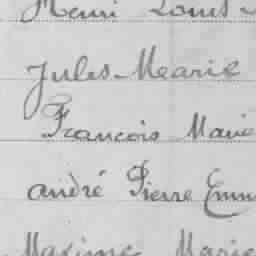 Henri Louis
Jules Marie
François Marie
André Pierre Emm
Maxime Marie